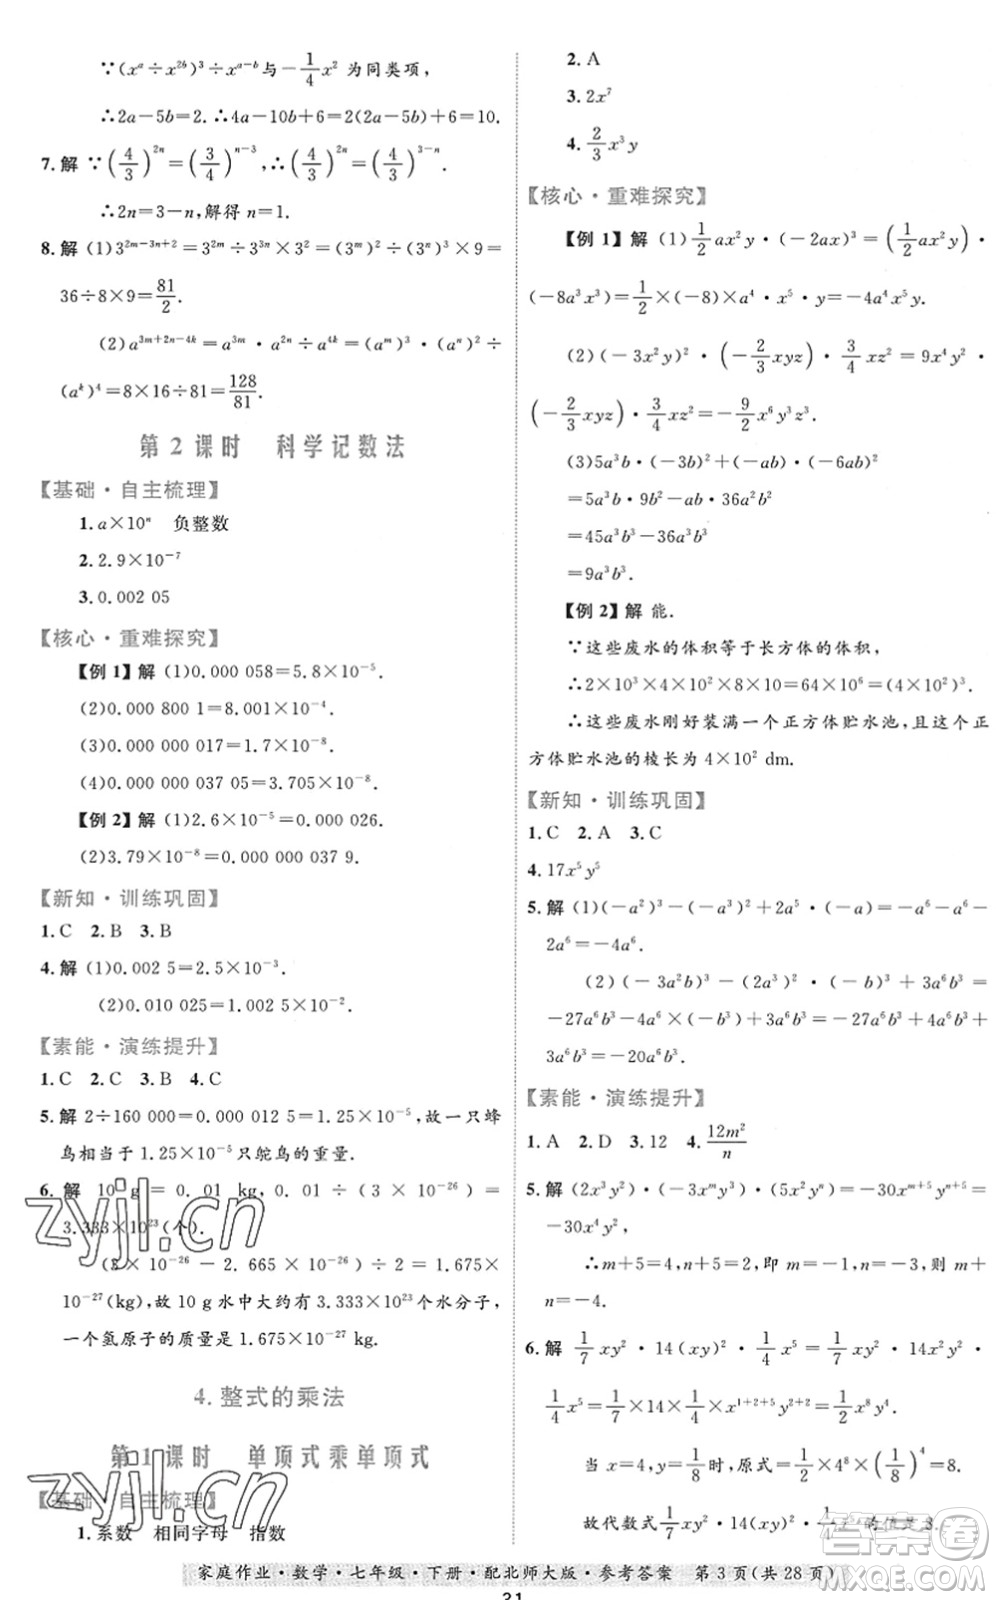 ∵(xᵃ÷x²ᵇ)³÷xᵃ⁻ᵇ与−1/4x² 为同类项，
∴2a−5b=2. ∴4a−10b+6=2(2a−5b)+6=10.
7.解 ∵(4/3)^{2n}=(3/4)^{n−3},∴(4/3)^{2n}=(4/3)^{3−n}.
∴2n=3−n,解得 n=1.
8.解 (1)3^{2m−3n+2}=3^{2m}÷3^{3n}×3²=(3^m)²÷(3^n)³×9=
36÷8×9=81/2.
(2)a^{3m+2n−4k}=a^{3m}·a^{2n}÷a^{4k}=(a^m)³·(a^n)²÷
(a^k)⁴=8×16÷81=128/81.
第 2 课时 科学记数法
【基础·自主梳理】
1.a×10ⁿ 负整数
2.2.9×10⁻⁷
3.0.002 05
【核心·重难探究】
【例 1】解 (1)0.000 058=5.8×10⁻⁵.
(2)0.000 800 1=8.001×10⁻⁴.
(3)0.000 000 017=1.7×10⁻⁸.
(4)0.000 000 037 05=3.705×10⁻⁸.
【例 2】解 (1)2.6×10⁻⁵=0.000 026.
(2)3.79×10⁻⁸=0.000 000 037 9.
【新知·训练巩固】
1.C 2.B 3.B
4.解 (1)0.002 5=2.5×10⁻³.
(2)0.010 025=1.002 5×10⁻².
【素能·演练提升】
1.C 2.C 3.B 4.C
5.解 2÷160 000=0.000 012 5=1.25×10⁻⁵,故一只蜂
鸟相当于 1.25×10⁻⁵只鸵鸟的重量.
6.解 10 g = 0.01 kg, 0.01÷(3×10⁻²⁶)=
3.333×10²³(个).
(3×10⁻²⁶−2.665×10⁻²⁶)÷2=1.675×
10⁻²⁷(kg),故 10 g 水中大约有 3.333×10²³个水分子,
一个氢原子的质量是 1.675×10⁻²⁷ kg.
4.整式的乘法
第 1 课时 单项式乘单项式
【基础·自主梳理】
1.系数 相同字母 指数
2.A
3.2x⁷
4.2/3x³y
【核心·重难探究】
【例 1】解 (1)1/2ax²y·(−2ax)³=(1/2ax²y)·
(−8a³x³)=1/2×(−8)×a⁴·x⁵·y=−4a⁴x⁵y.
(2)(−3x²y)²·(−2/3xyz)·3/4xz²=9x⁴y²·
(−2/3xyz)·3/4xz²=−9/2x⁶y³z³.
(3)5a³b·(−3b)²+(−ab)·(−6ab)²
=5a³b·9b²−ab·36a²b²
=45a³b³−36a³b³
=9a³b³.
【例 2】解 能.
∵这些废水的体积等于长方体的体积,
∴2×10³×4×10²×8×10=64×10⁶=(4×10²)³.
∴这些废水刚好装满一个正方体贮水池,且这个正
方体贮水池的棱长为 4×10² dm.
【新知·训练巩固】
1.C 2.A 3.C
4.17x⁵y⁵
5.解 (1)(−a²)³−(−a³)²+2a⁵·(−a)=−a⁶−a⁶−
2a⁶=−4a⁶.
(2)(−3a²b)³−(2a³)²·(−b)³+3a⁶b³=
−27a⁶b³−4a⁶×(−b³)+3a⁶b³=−27a⁶b³+4a⁶b³+
3a⁶b³=−20a⁶b³.
【素能·演练提升】
1.A 2.D 3.12 4.12m²/n
5.解 (2x³y²)·(−3x^m y³)·(5x²yⁿ)=−30x^{m+5}y^{n+5}=
−30x⁴y²,
∴m+5=4,n+5=2,即 m=−1,n=−3. 则 m+
n=−4.
6.解 1/7xy²·14(xy)²·1/4x⁵=1/7xy²·14x²y²·
1/4x⁵=1/7×14×1/4×x^{1+2+5}y^{2+2}=1/2x⁸y⁴.
当 x=4,y=1/8时,原式=1/2×4⁸×(1/8)⁴=8.
故代数式1/7xy²·14(xy)²·1/4x⁵的值是 8.
家庭作业·数学·七年级·下册·配北师大版·参考答案 第 3 页(共 28 页)
21
zyjl.cn
zyjl.cn
答案圈
MXQE.COM